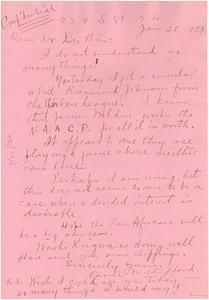 Confidential
939 S St. N.W.
Jan 28, 1929
Dear Dr Du Bois:
I do not understand so
many things!
Yesterday I got a circular
about Rosamond Johnson from
the Urban League. I know
that James Weldon works the
N.A.A.C.P. for all it is worth.
It appears to me they are
playing a game where neither
can lose!
Perhaps I am wrong, but
this does not seem to me to be a
case where a divided interest is
desirable.
Hope the Pan African will
be a big success.
Washington is doing well.
Have sent you some clippings.
Sincerely yours,
Carrie W. Clifford.
P.S. Wish I could see you to talk
so many things I would say!